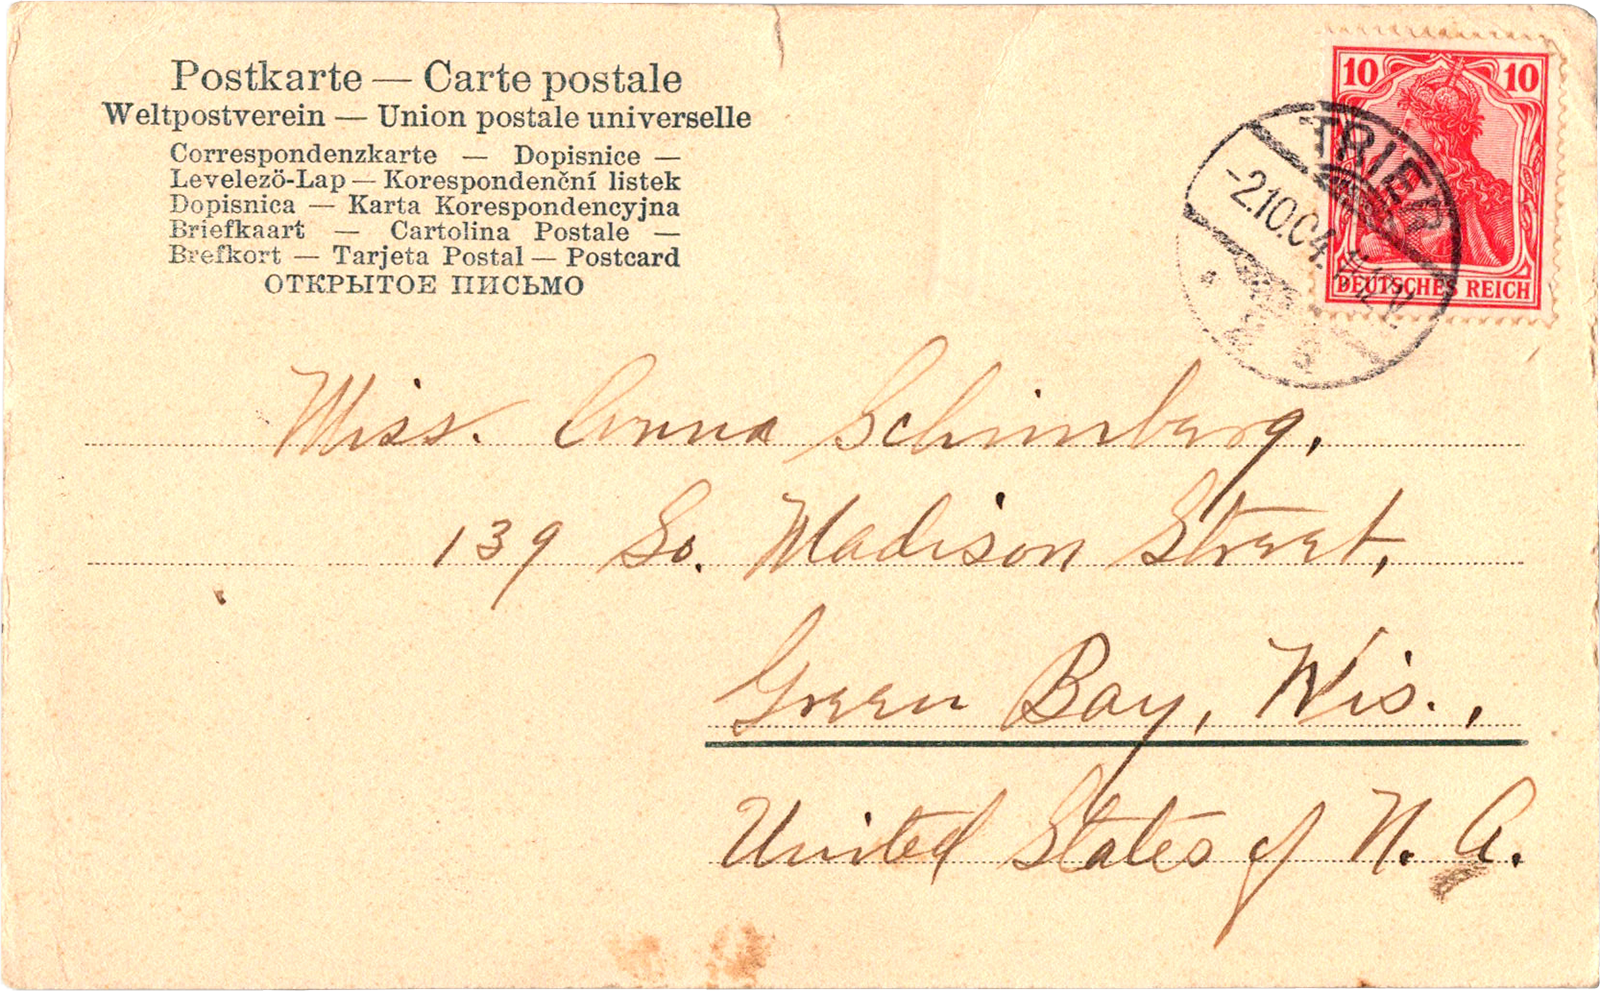 Postkarte — Carte postale
Weltpostverein — Union postale universelle
Correspondenzkarte — Dopisnice —
Levelezö-Lap — Korespondenční listek
Dopisnica — Karta Korespondencyjna
Briefkaart — Cartolina Postale —
Brefkort — Tarjeta Postal — Postcard
ОТКРЫТОЕ ПИСЬМО
10 10
DEUTSCHES REICH
TRIER
-2.10.04.
Miss. Anna Schimberg,
139 So. Madison Street,
Green Bay, Wis.,
United States of N. A.